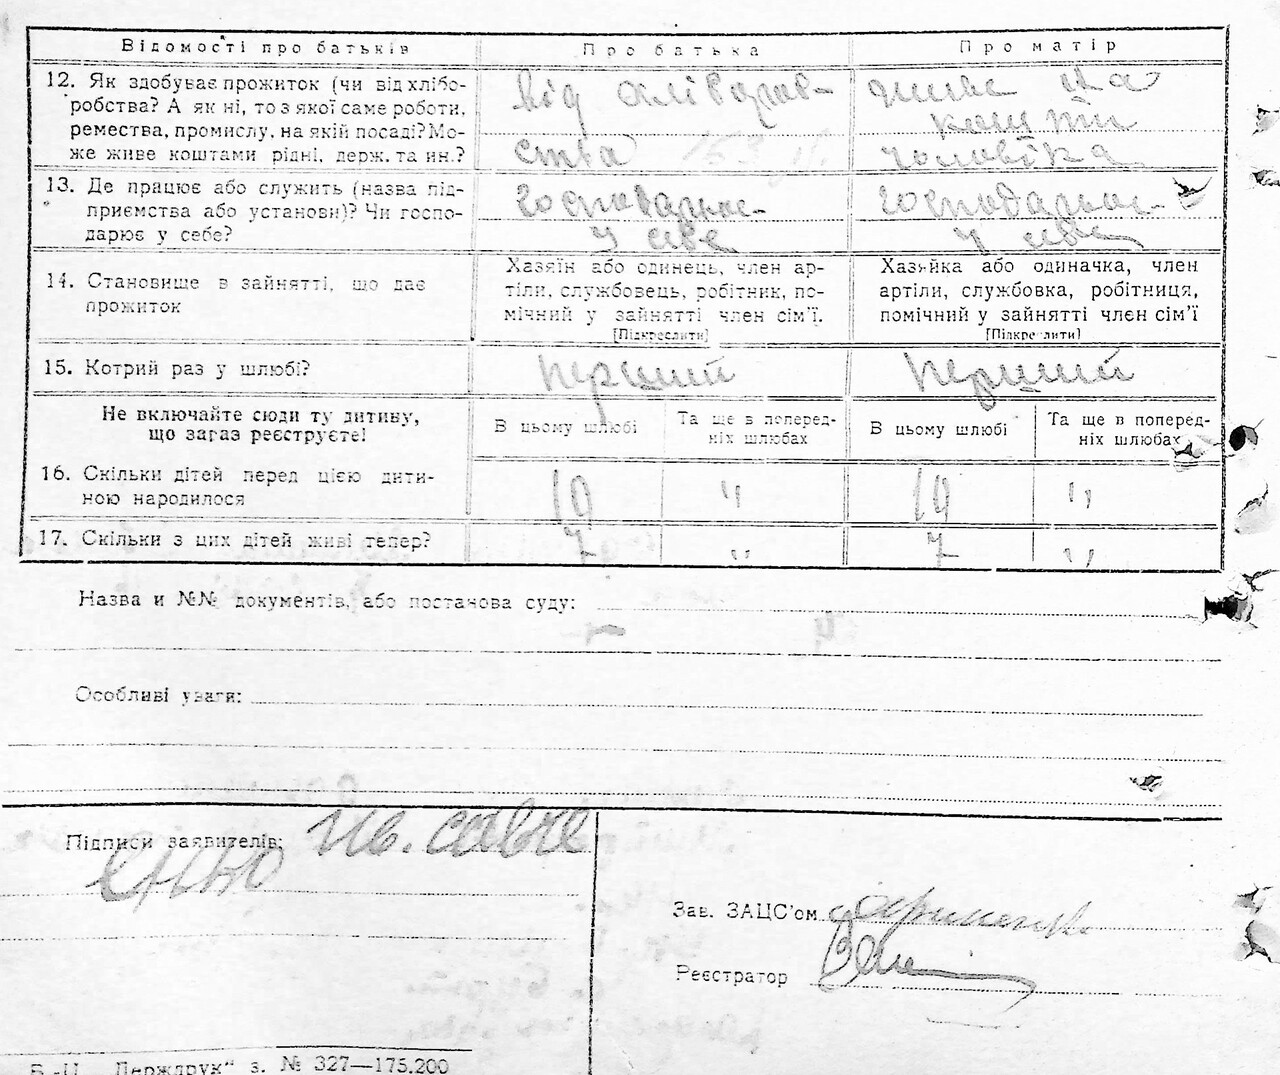 Відомості про батьків
Про батька
Про матір
12. Як здобуває прожиток (чи від хлібо-
робства? А як ні, то з якої саме роботи,
ремества, промислу, на якій посаді? Мо-
же живе коштами рідні, держ. та ин.?
від хлібороб-
ства
живе на
кошти
чоловіка
13. Де працює або служить (назва під-
приємства або установи)? Чи госпо-
дарює у себе?
господарює
у себе
господарює
у себе
14. Становище в зайнятті, що дає
прожиток
Хазяїн або одинець, член ар-
тіли, службовець, робітник, по-
мічний у зайнятті член сім'ї.
[Підкреслити]
Хазяйка або одиначка, член
артіли, службовка, робітниця,
помічний у зайнятті член сім'ї
[Підкреслити]
15. Котрий раз у шлюбі?
перший
перший
Не включайте сюди ту дитину,
що загаз реєструєте!
В цьому шлюбі
Та ще в поперед-
ніх шлюбах
В цьому шлюбі
Та ще в поперед-
ніх шлюбах
16. Скільки дітей перед цією дити-
ною народилося
10
"
10
"
17. Скільки з цих дітей живі тепер?
7
"
7
"
Назва и №№ документів, або постанова суду:
Особливі уваги:
Підписи заявителів:
Зав. ЗАЦС'ом
Реєстратор
Держдрук" з. № 327—175.200